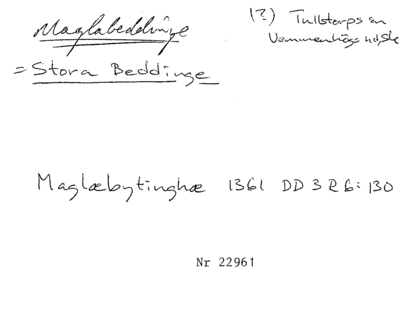 Maglabeddinge
(?) Tullstorps sn
Vemmenhögs hd, Sk
= Stora Beddinge
Maglæbytinghæ 1361 DD 3 R 6: 130
Nr 22961